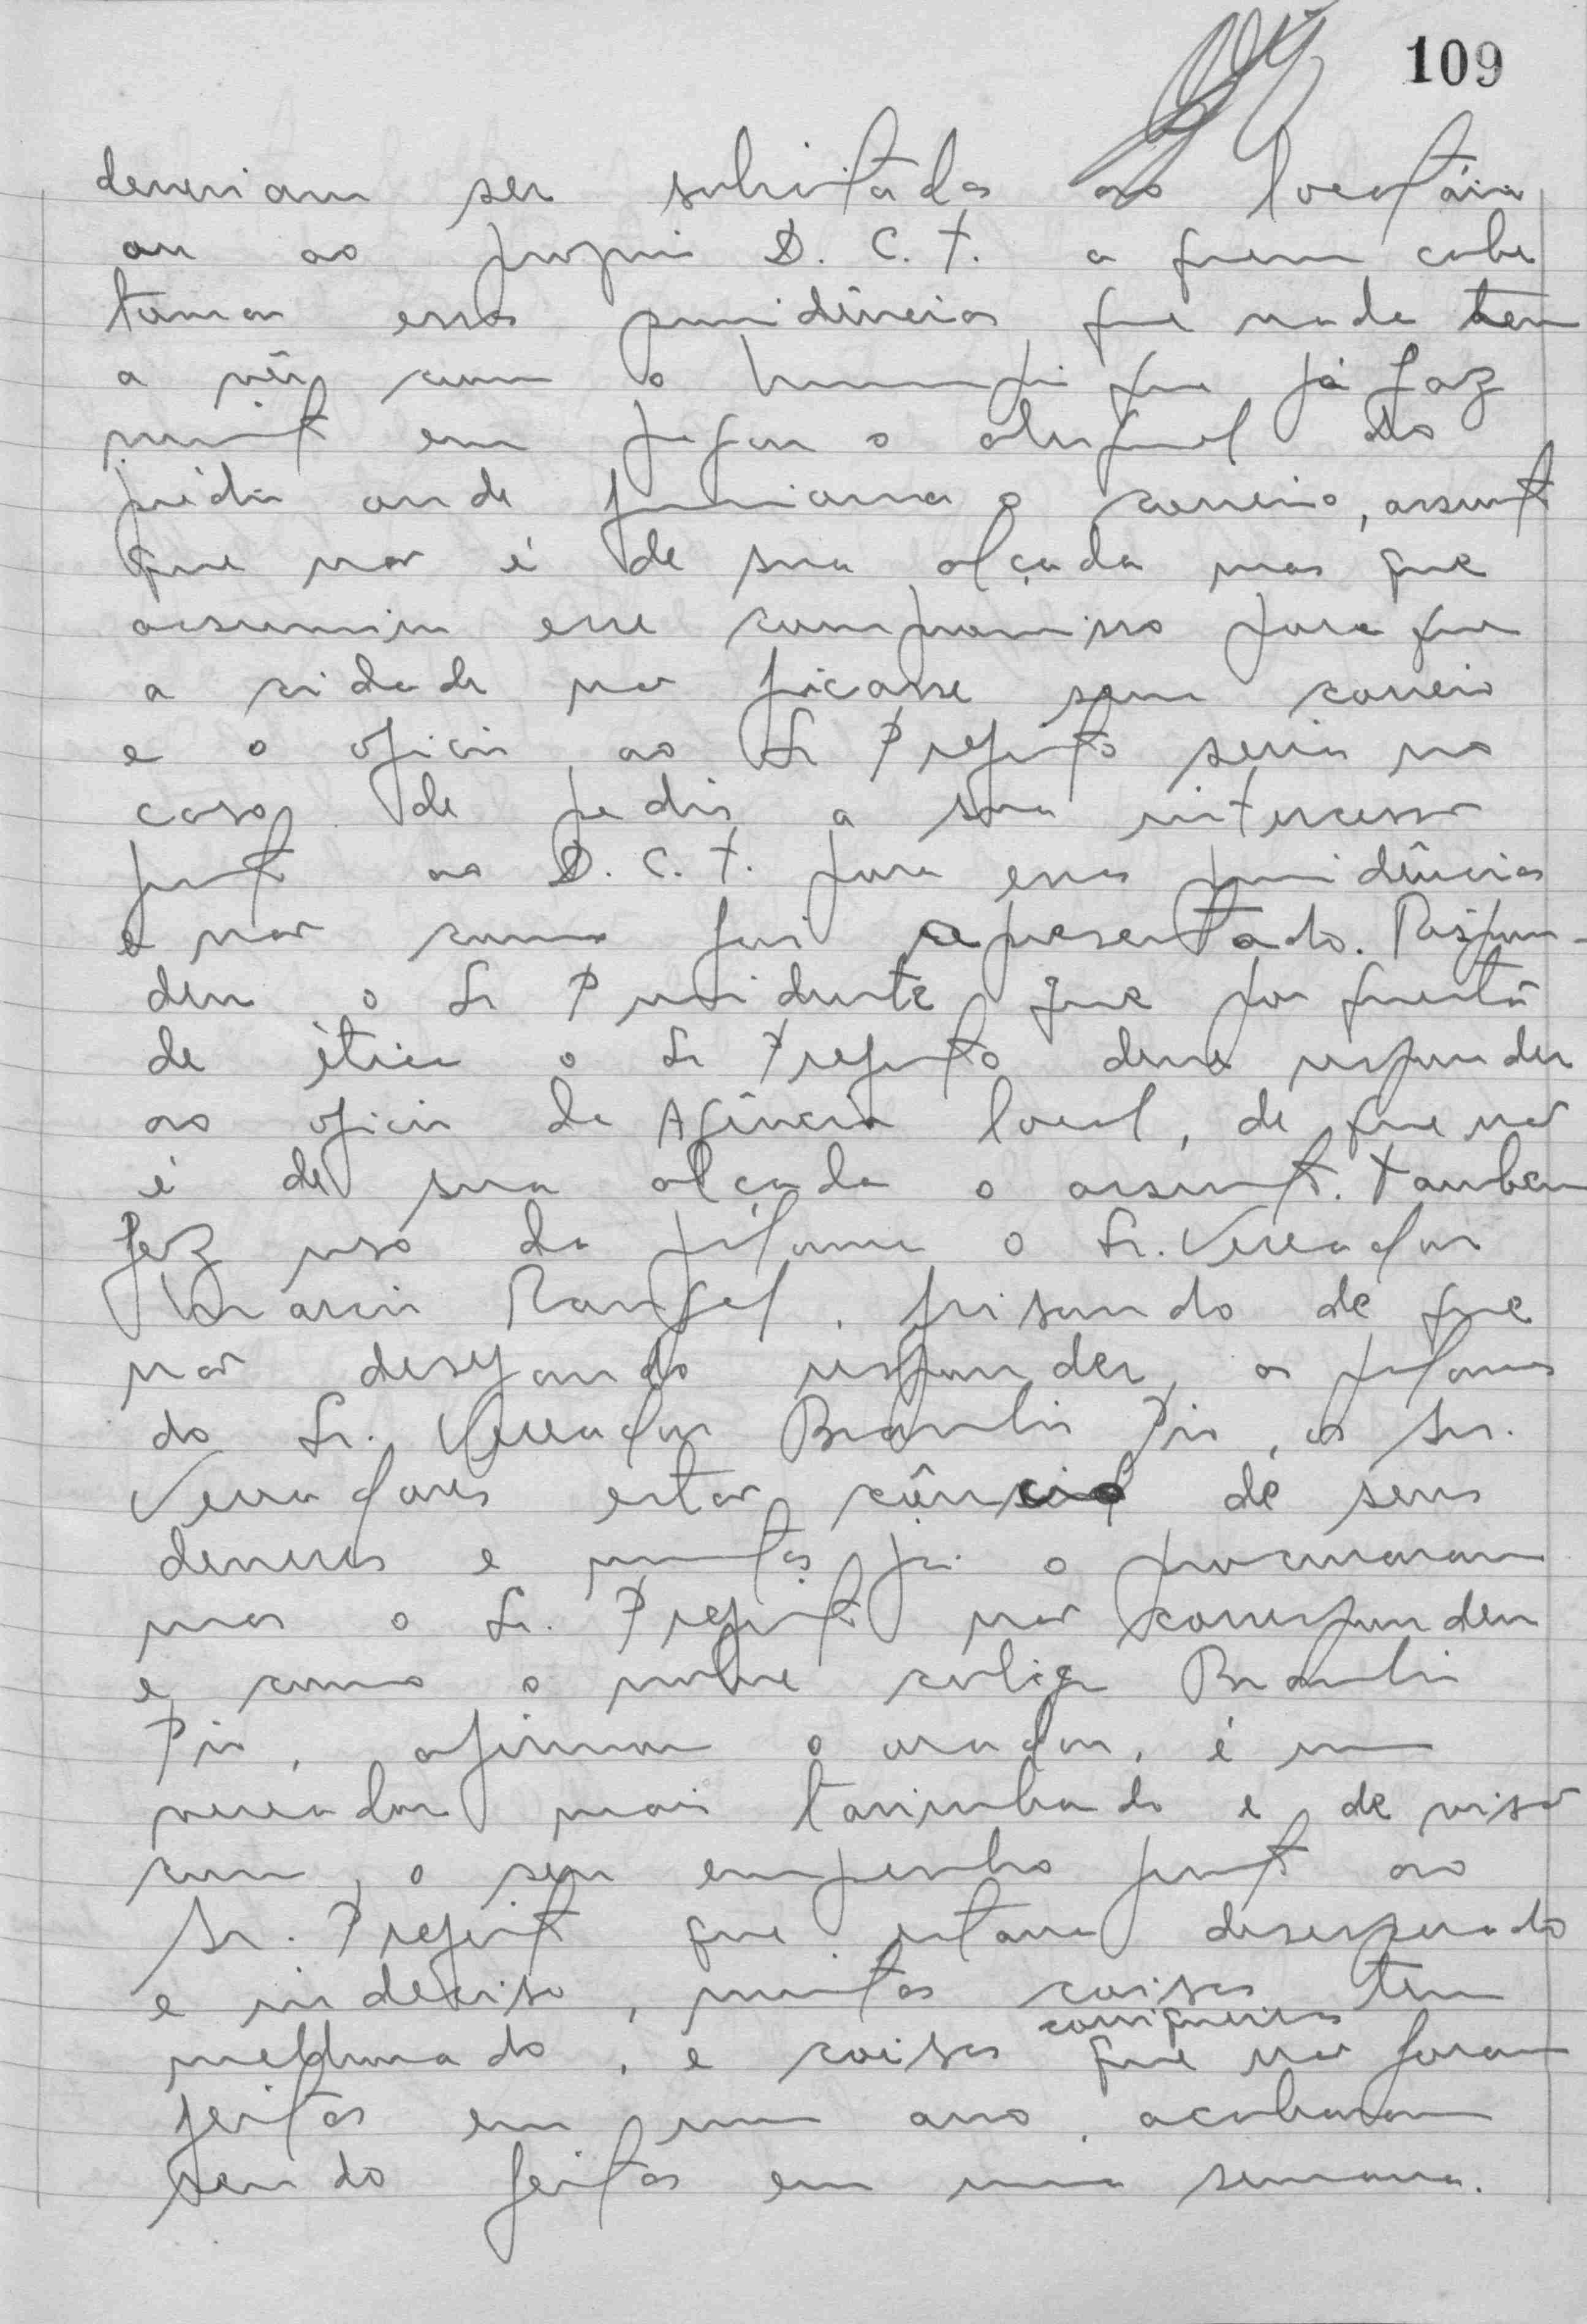 109
deveriam ser solicitadas ao locatário
ou ao proprio D. C. T. a quem cabe
tomar essas providências que nada tem
a vêr com o Municipio que já faz
muito em pagar o aluguel do
prédio onde funciona o correio, assunto
que não é de sua alçada mas que
assumiu esse compromisso para que
a cidade não ficasse sem correio
e o oficio ao Sr Prefeito seria no
caso de pedir a sua intercessão
junto ao D. C. T. para essas providências
e não como foi apresentado. Respon-
deu o Sr Presidente que por questão
de ética o Sr Prefeito deve responder
ao oficio da Agência local, de que não
é de sua alçada o assunto. Tambem
fez uso da palavra o Sr. Vereador
Marcio Rangel, frisando de que
não desejando responder as palavras
do Sr. Vereador Braulio Pio, os Srs.
Vereadores estão côncio de seus
deveres e muitos já o procuraram
mas o Sr. Prefeito não correspondeu
e como o nobre colega Braulio
Pio, afirmou o orador, é um
vereador mais tarimbado e de visão
com o seu empenho junto ao
Sr. Prefeito que estava desesperado
e indeciso, muitas coisas tem
melhorado, e coisas corriqueiras que não foram
feitas em um ano, acabaram
sendo feitas em uma semana.